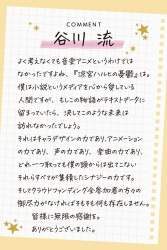 COMMENT
谷川 流
よく考えなくても音楽アニメというわけでは
なかったですよね、『涼宮ハルヒの憂鬱』は。
僕は小説というメディアをもから愛している
人間ですが、もしこの物語がテキストデータに
留まっていたら、決してこのような未来は
訪れなかったでしょう。
それはキャラデザインの力であり、アニメーション
の力であり、声の力であり、音曲の力であり、
どれ一つ取っても僕の頭からは出てこない
それらすべてが集積したシナジーの力です。
そしてクラウドファンディング全参加者の方々の
御尽力がなければそもそも何も存在しません。
皆様に無限の感謝を。
ありがとうございました。